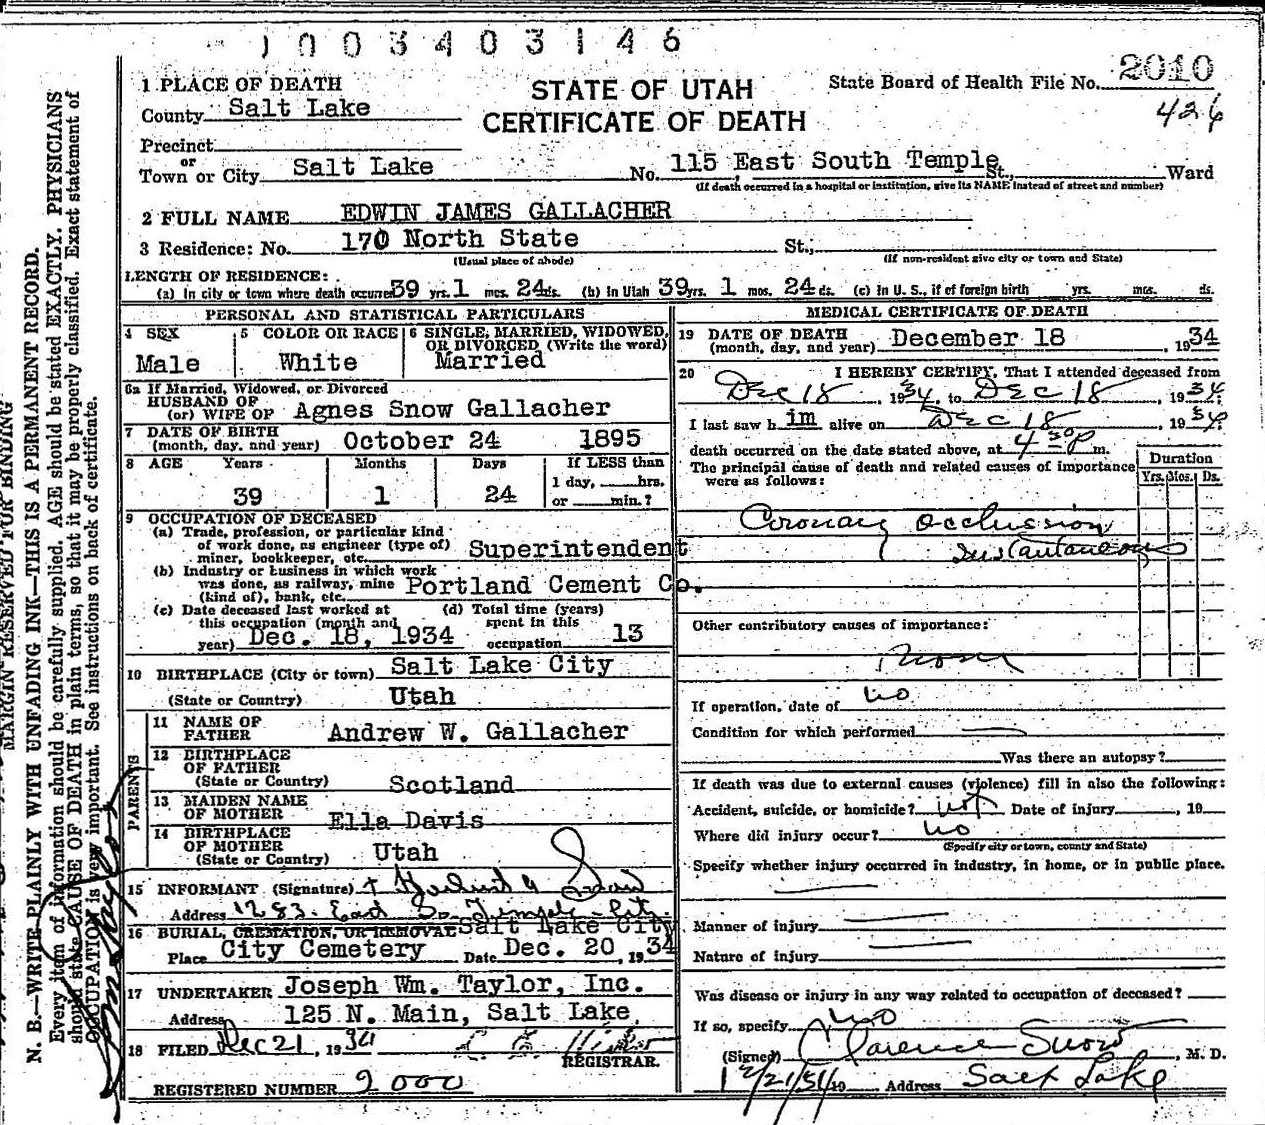 1003403146
1 PLACE OF DEATH
County Salt Lake
Precinct
or
Town or City Salt Lake
STATE OF UTAH
CERTIFICATE OF DEATH
State Board of Health File No. 2010
426
No. 115 East South Temple St., Ward
(If death occurred in a hospital or institution, give its NAME instead of street and number)
2 FULL NAME EDWIN JAMES GALLACHER
3 Residence: No. 170 North State St.,
(Usual place of abode) (If non-resident give city or town and State)
LENGTH OF RESIDENCE:
(a) In city or town where death occurred 39 yrs. 1 mos. 24 ds. (b) In Utah 39 yrs. 1 mos. 24 ds. (c) In U. S., if of foreign birth yrs. mos. ds.
PERSONAL AND STATISTICAL PARTICULARS
4 SEX
Male
5 COLOR OR RACE
White
6 SINGLE, MARRIED, WIDOWED,
OR DIVORCED (Write the word)
Married
6a If Married, Widowed, or Divorced
HUSBAND OF
(or) WIFE OF Agnes Snow Gallacher
7 DATE OF BIRTH
(month, day, and year) October 24 1895
8 AGE Years Months Days If LESS than
1 day, hrs.
39 1 24 or min.?
9 OCCUPATION OF DECEASED
(a) Trade, profession, or particular kind
of work done, as engineer (type of)
miner, bookkeeper, etc. Superintendent
(b) Industry or business in which work
was done, as railway, mine
(kind of), bank, etc. Portland Cement Co.
(c) Date deceased last worked at
this occupation (month and
year) Dec. 18, 1934
(d) Total time (years)
spent in this
occupation 13
10 BIRTHPLACE (City or town) Salt Lake City
(State or Country) Utah
PARENTS
11 NAME OF
FATHER Andrew W. Gallacher
12 BIRTHPLACE
OF FATHER
(State or Country) Scotland
13 MAIDEN NAME
OF MOTHER Ella Davis
14 BIRTHPLACE
OF MOTHER
(State or Country) Utah
15 INFORMANT (Signature) Snow
Address 1283 East So. Temple - City
16 BURIAL, CREMATION, OR REMOVAL Salt Lake City
Place City Cemetery Date Dec. 20, 1934
17 UNDERTAKER Joseph Wm. Taylor, Inc.
Address 125 N. Main, Salt Lake
18 FILED Dec 21, 1934
REGISTRAR.
REGISTERED NUMBER 2000
MEDICAL CERTIFICATE OF DEATH
19 DATE OF DEATH
(month, day, and year) December 18, 1934
20 I HEREBY CERTIFY, That I attended deceased from
Dec 18, 1934, to Dec 18, 1934.
I last saw him alive on Dec 18, 1934
death occurred on the date stated above, at 4 30 p m.
The principal cause of death and related causes of importance
were as follows:
Duration
Yrs. Mos. Ds.
Coronary occlussion
Instantaneous
Other contributory causes of importance:
None
If operation, date of no
Condition for which performed
Was there an autopsy?
If death was due to external causes (violence) fill in also the following:
Accident, suicide, or homicide? not Date of injury, 19
Where did injury occur? no
(Specify city or town, county and State)
Specify whether injury occurred in industry, in home, or in public place.
Manner of injury
Nature of injury
Was disease or injury in any way related to occupation of deceased?
If so, specify No
(Signed) Clarence Snow, M. D.
12/21/34 19 Address Salt Lake
MARGIN RESERVED FOR BINDING
N. B.—WRITE PLAINLY WITH UNFADING INK—THIS IS A PERMANENT RECORD.
Every item of information should be carefully supplied. AGE should be stated EXACTLY. PHYSICIANS
should state CAUSE OF DEATH in plain terms, so that it may be properly classified. Exact statement of
OCCUPATION is very important. See instructions on back of certificate.